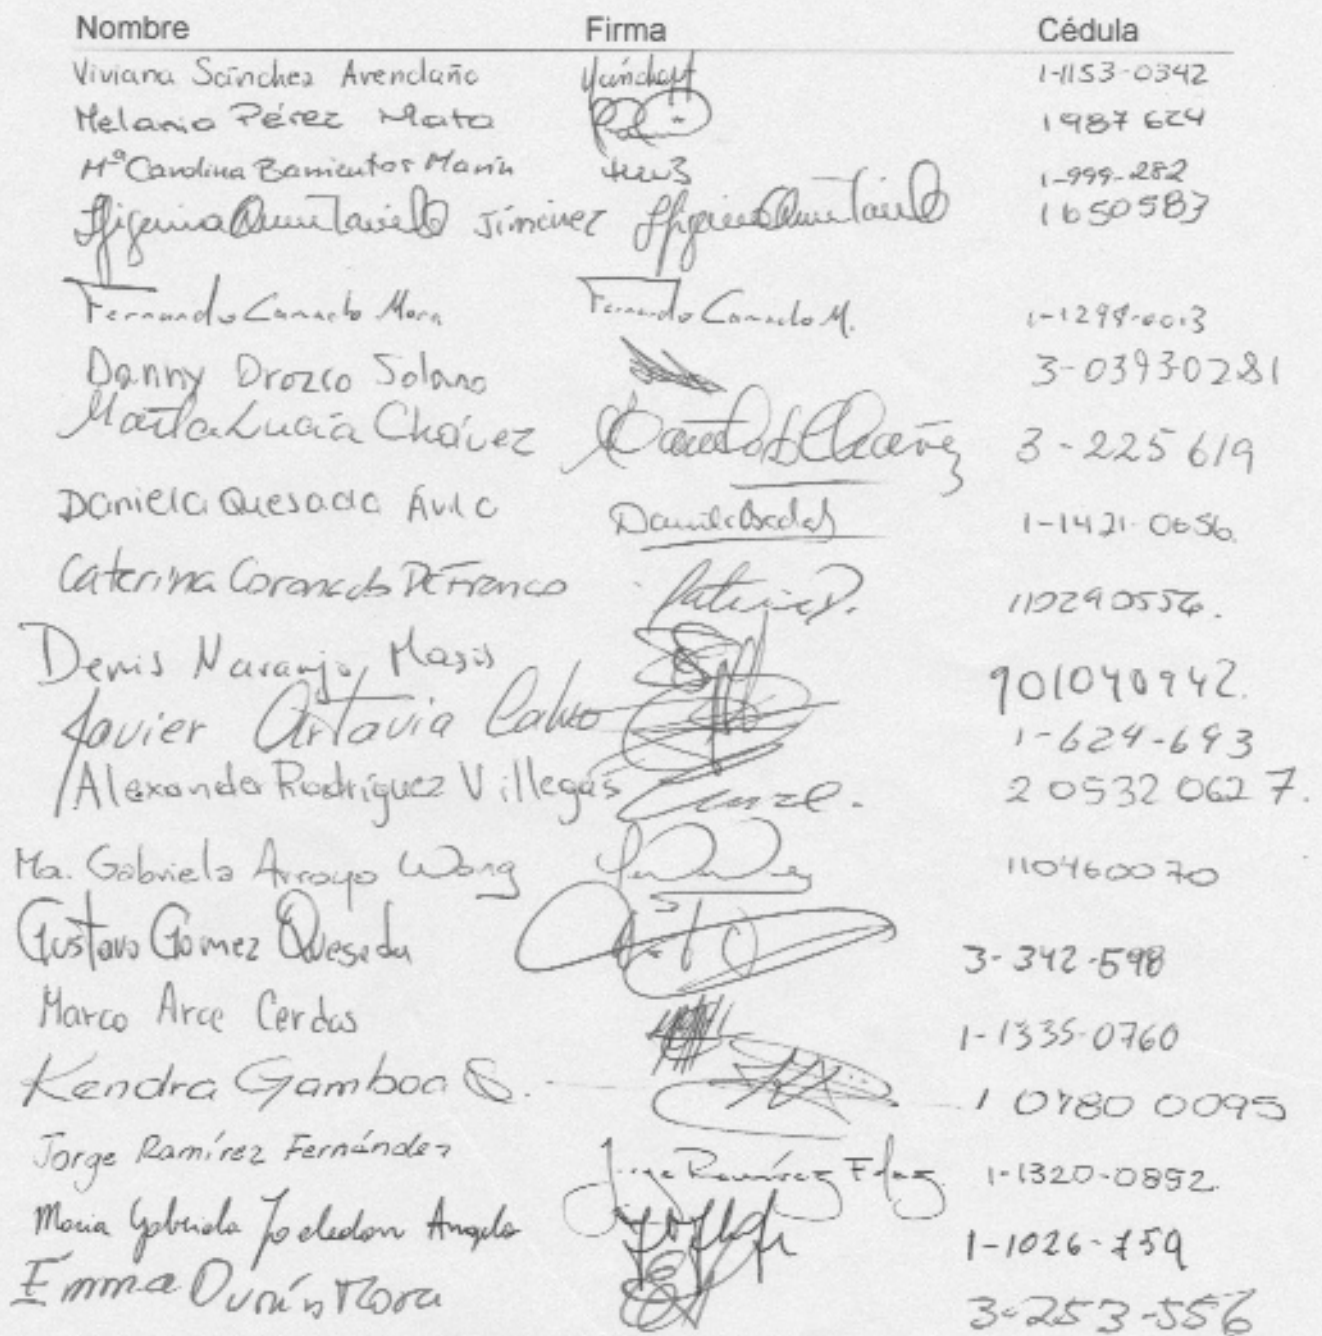 Nombre Firma Cédula
Viviana Sánchez Avendaño 1-1153-0342
Melania Pérez Mata 1987624
Mª Carolina Barrientos Marín 1-999-282
Ifigenia Quintanilla Jiménez Ifigenia Quintanilla 1650583
Fernando Camacho Mora Fernando Camacho M. 1-1298-0013
Danny Orozco Solano 3-03930281
Marta Lucía Chávez 3-225 619
Daniela Quesada Ávila 1-1421-0656.
Caterina Coronado De Franco 110290556.
Denis Naranjo Masis 901040942.
Javier Artavia Calvo 1-624-693
Alexander Rodríguez Villegas 2 0532 0627.
Ma. Gabriela Arroyo Wong 110460070
Gustavo Gómez Quesada 3-342-598
Marco Arce Cerdas 1-1335-0760
Kendra Gamboa S. 1 0780 0095
Jorge Ramírez Fernández Jorge Ramírez Fdez 1-1320-0892.
María Gabriela Angulo 1-1026-759
Emma Durán Mora 3-253-556